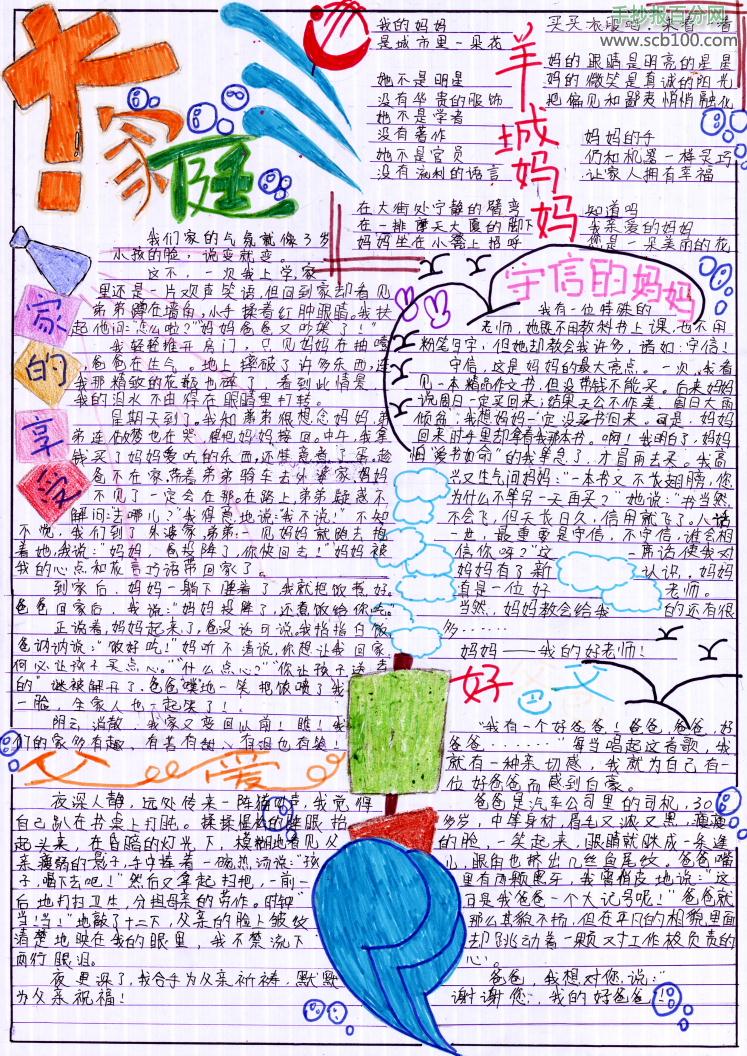 手抄报百分网
www.scb100.com
家庭
我的妈妈
是城市里一朵花
她不是明星
没有华贵的服饰
她不是学者
没有著作
她不是官员
没有流利的语言
在大街处宁静的臂弯
在一排摩天大厦的脚下
妈妈坐在小窗上招呼
羊城妈妈
妈的眼睛是明亮的星星
妈的微笑是真诚的阳光
把偏见和鄙夷悄悄融化
妈妈的手
仍和机器一样灵巧
让家人拥有幸福
知道吗
我亲爱的妈妈
您是一朵美丽的花
家的享受
我们家的气氛就像3岁
小孩的脸，说变就变。
这不，一次我上学，家
里还是一片欢声笑语，但回到家却看见
弟弟蹲在墙角，小手揉着红肿眼睛。我扶
起他问：“怎么啦？”“妈妈爸爸又吵架了！”
我轻轻推开房门，只见妈妈在抽噎
，爸爸在生气。地上摔破了许多东西，连
我那精致的花瓶也碎了，看到此情景，
我的泪水不由得在眼睛里打转。
星期天到了。我知弟弟很想念妈妈，弟
弟连做梦也在哭，
我买了妈妈爱吃的东西，
爸不在家，带着弟弟骑车去外婆家，妈妈
不见了一定会在那。在路上，弟弟疑惑不
解问：“去哪儿？”我得意地说：“我不说！”不知
不觉，我们到了外婆家，弟弟一见妈妈就跑去抱
着她，我说：“妈妈，爸投降了，你快回去！”妈妈被
我的点心和花言巧语带回家了。
到家后，妈妈一躺下睡着了，我就把饭煮好。
爸爸回家后，我说：“妈妈投降了，还煮饭给你吃。”
正说着，妈妈起来了，爸没话可说，我指指白饭
爸讷讷说：“做好吃！”妈听不清说，你想让我回家，
何必让孩子买点心。”“什么点心？”“你让孩子送去
的”谜被解开了，爸爸“噗”地一笑把饭喷了我
一脸，全家人也一起笑了！
阴云消散，我家又变回从前！瞧！我
们的家多有趣，有苦有甜、有泪也有笑！
守信的妈妈
我有一位特殊的
老师，她既不用教科书上课，也不用
粉笔写字，但她却教会我许多，诸如：守信！
守信，这是妈妈的最大亮点。一次，我看
见一本精品作文书，但没带钱不能买。后来妈妈
说周日一定买回来；结果天公不作美，周日大雨
倾盆，我想妈妈一定没买书回来。可是，妈妈
回来时手里却拿着我那本书。啊！我明白了，妈妈
怕“爱书如命”的我着急了，才冒雨去买。我高
兴又生气问妈妈：“一本书又不长翅膀，您
为什么不等另一天再买？”她说：“书当然
不会飞，但天长日久，信用就飞了。人活
一世，最重要是守信，不守信，谁会相
信你呀？”这一席话使我对
妈妈有了新认识，妈妈
真是一位好老师。
当然，妈妈教会给我的还有很
多……
妈妈——我的好老师！
父爱
夜深人静，远处传来一阵猫叫声，我觉得
自己趴在书桌上打盹。揉揉惺忪的睡眼抬
起头来，在昏暗的灯光下，模糊地看见父
亲瘦弱的影子，手中捧着一碗热汤说：“孩
子，喝下去吧！”然后又拿起扫把，一前一
后地打扫卫生，分担母亲的劳作。时钟“
当！当！”地敲了十二下，父亲的脸上皱纹
清楚地映在我的眼里，我不禁流下
两行眼泪。
夜更深了，我合手为父亲祈祷，默默
为父亲祝福！
好父
“我有一个好爸爸！爸爸，爸爸，好
爸爸………”每当唱起这首歌，我
就有一种亲切感，我就为自己有一
位好爸爸而感到自豪。
爸爸是汽车公司里的司机，30
多岁，中等身材，眉毛又浓又黑，瘦瘦
的脸，一笑起来，眼睛就眯成一条缝
儿，眼角也挤出几丝鱼尾纹，爸爸嘴
里有两颗黑牙，我曾俏皮地说：“这
可是我爸爸一个大记号呢！”爸爸就
那么其貌不扬，但在平凡的相貌里面
却跳动着一颗对工作极负责的
心。
爸爸，我想对您说：“
谢谢您，我的好爸爸！”